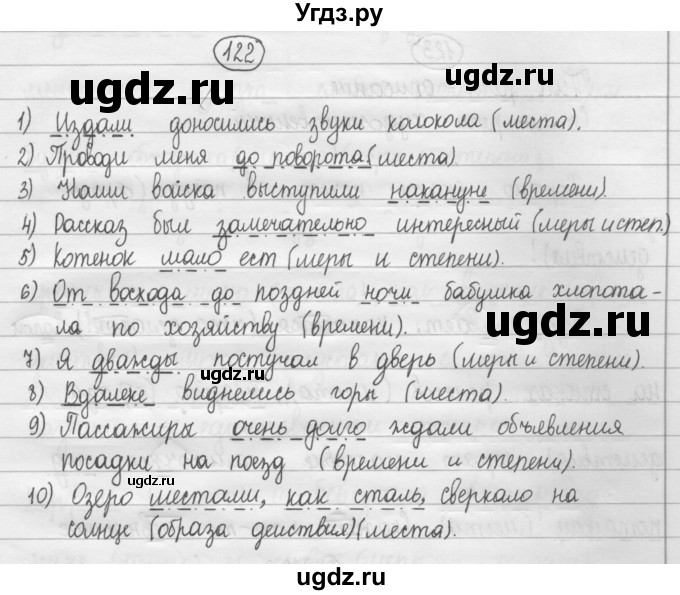 Угдз.ру
122
ugdz.ru
1) Издали доносились звуки колокола (места).
2) Проводи меня до поворота (места)
3) Наши войска выступили накануне (времени).
4) Рассказ был замечательно интересный (меры и степ.)
5) Котенок мало ест (меры и степени).
6) От восхода до поздней ночи бабушка хлопота-
ugdz.ru
ла по хозяйству (времени).
7) Я дважды постучал в дверь (меры и степени).
ugdz.ru
8) Вдалеке виднелись горы (места).
9) Пассажиры очень долго ждали объявления
посадки на поезд (времени и степени).
10) Озеро местами, как сталь, сверкало на
солнце (образа действия)(места).
ugdz.ru